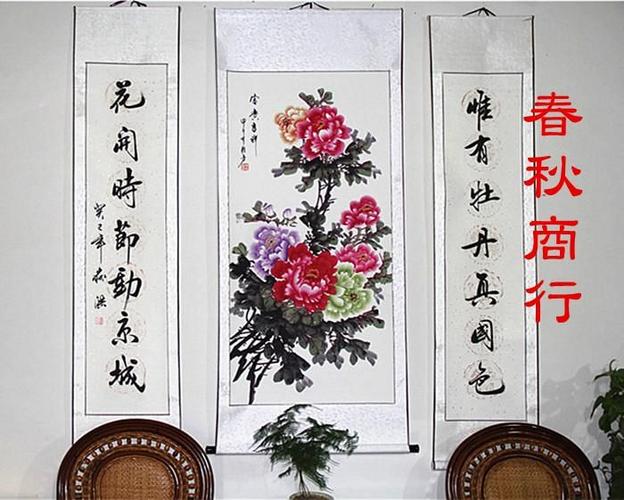 惟有牡丹真國色
花開時節動京城
富貴吉祥
春秋商行